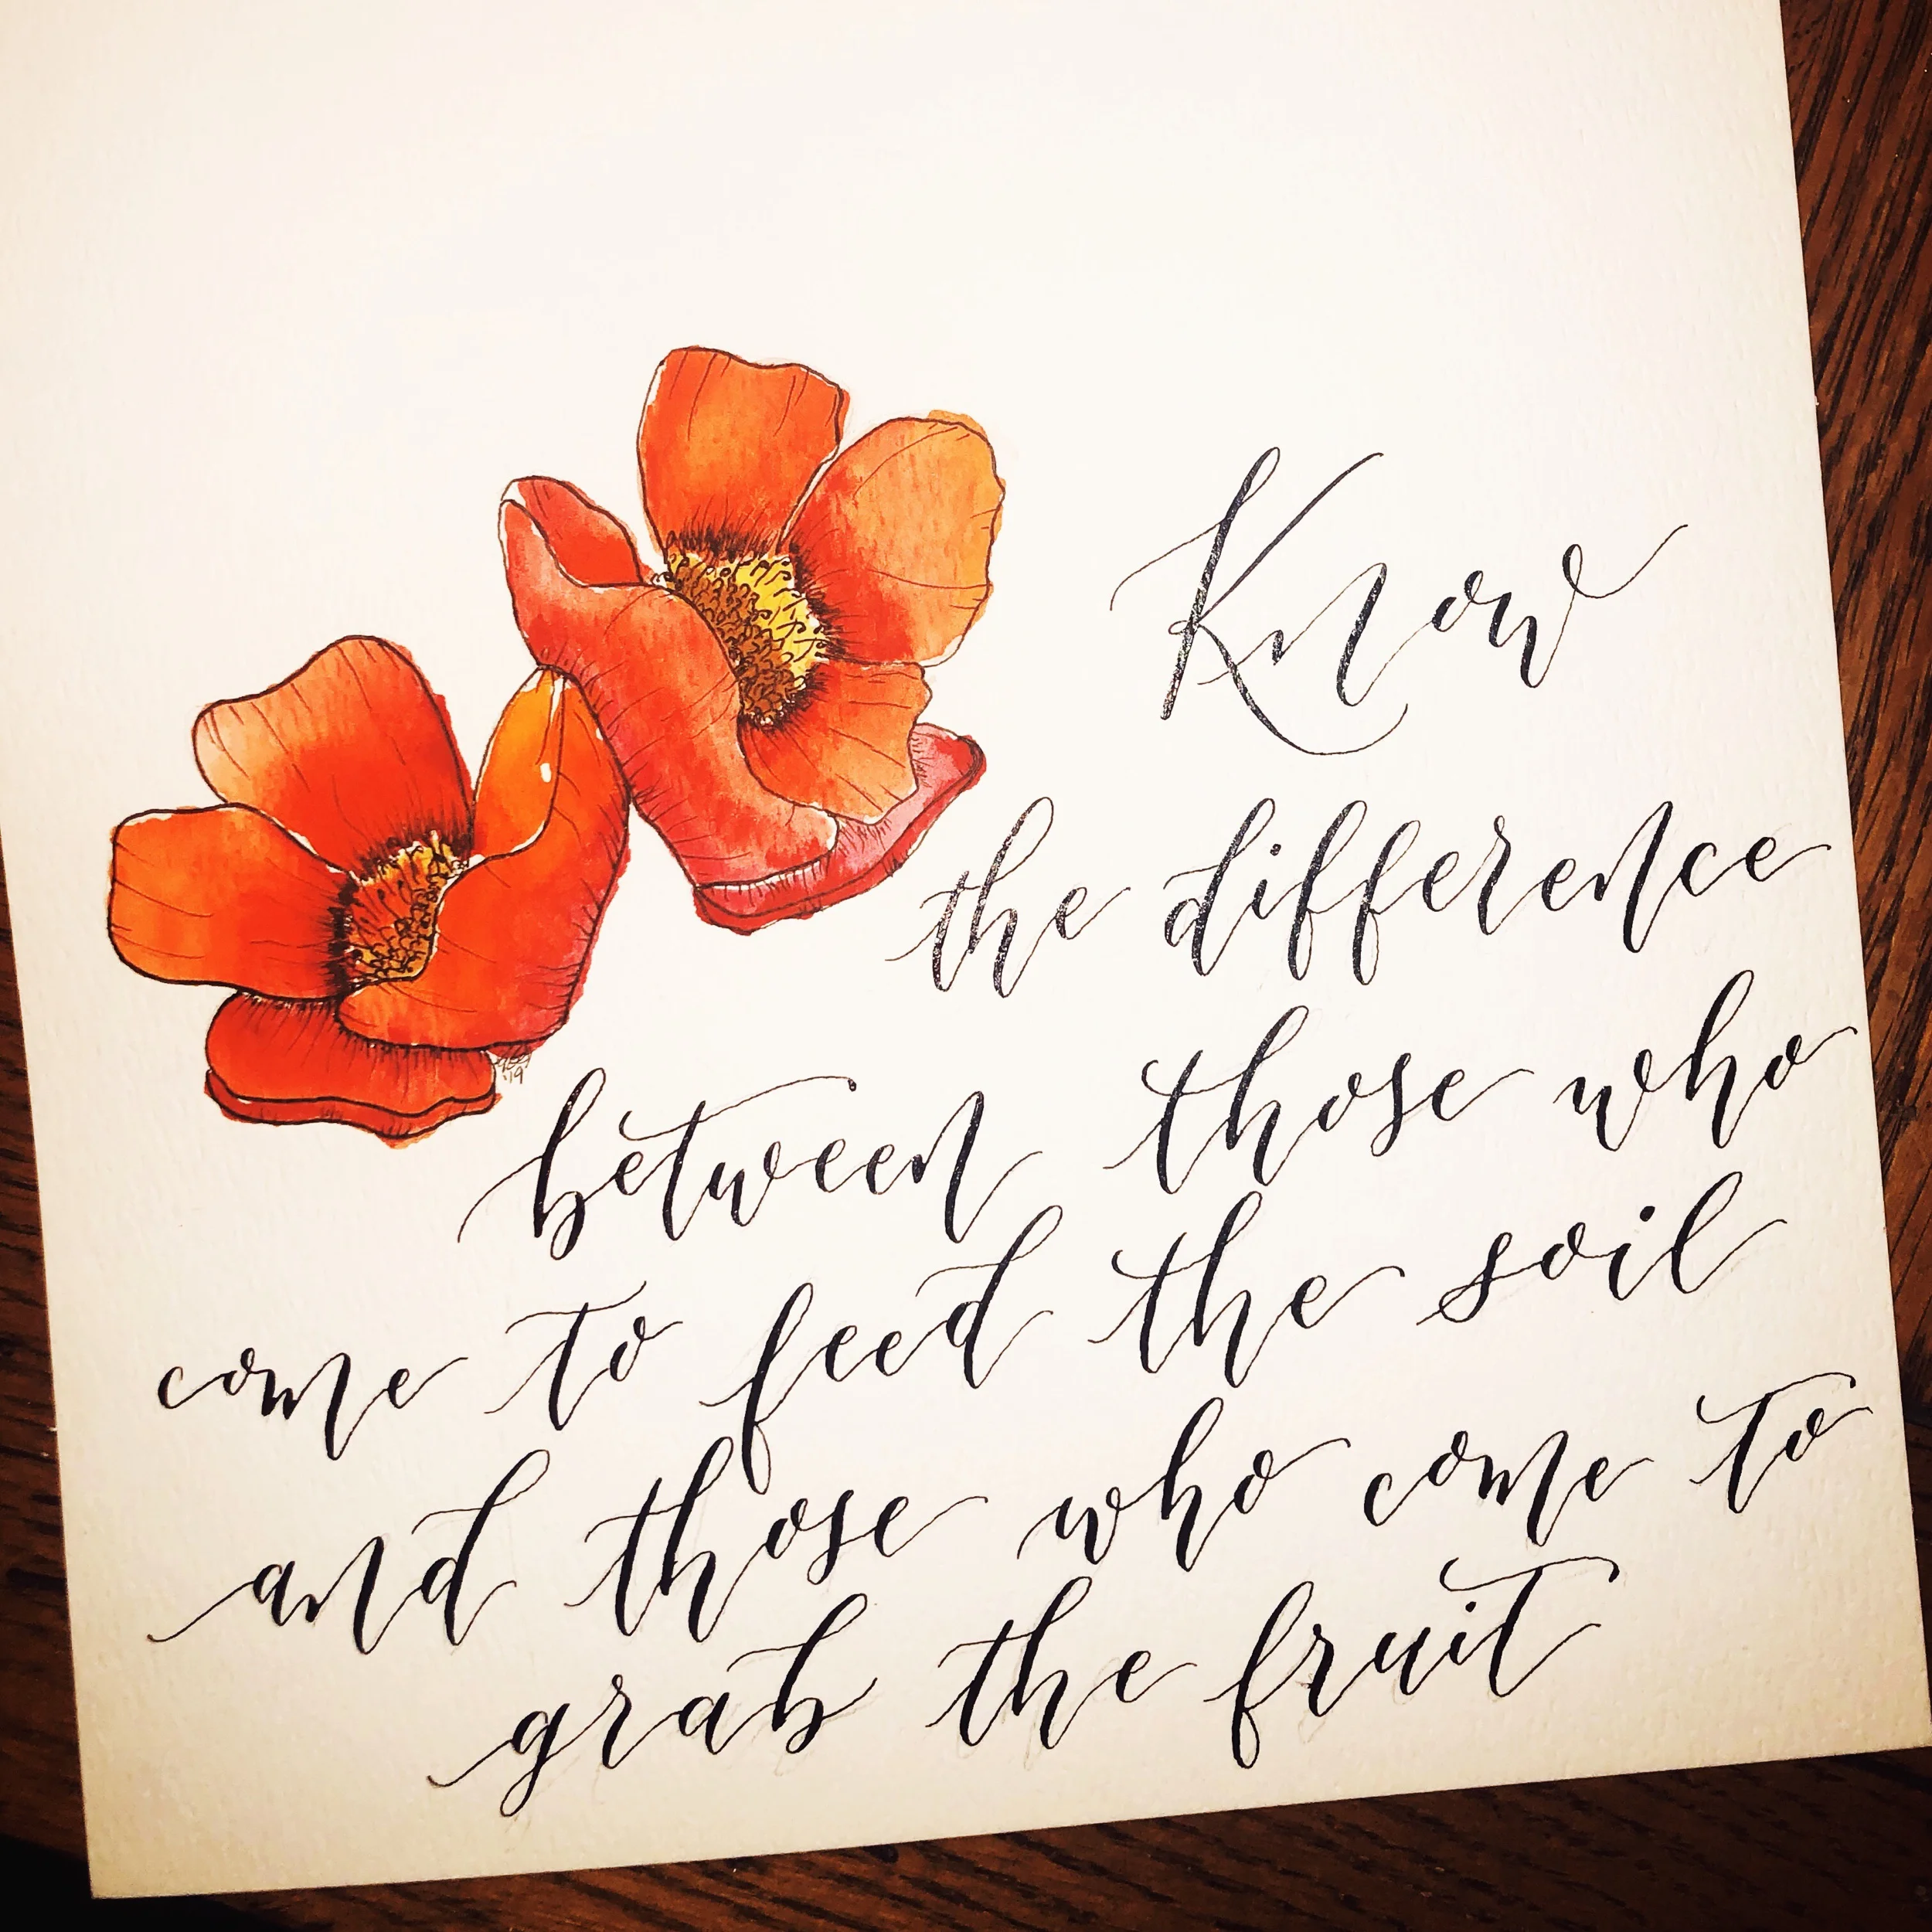 Know
the difference
between those who
come to feed the soil
and those who come to
grab the fruit
'19